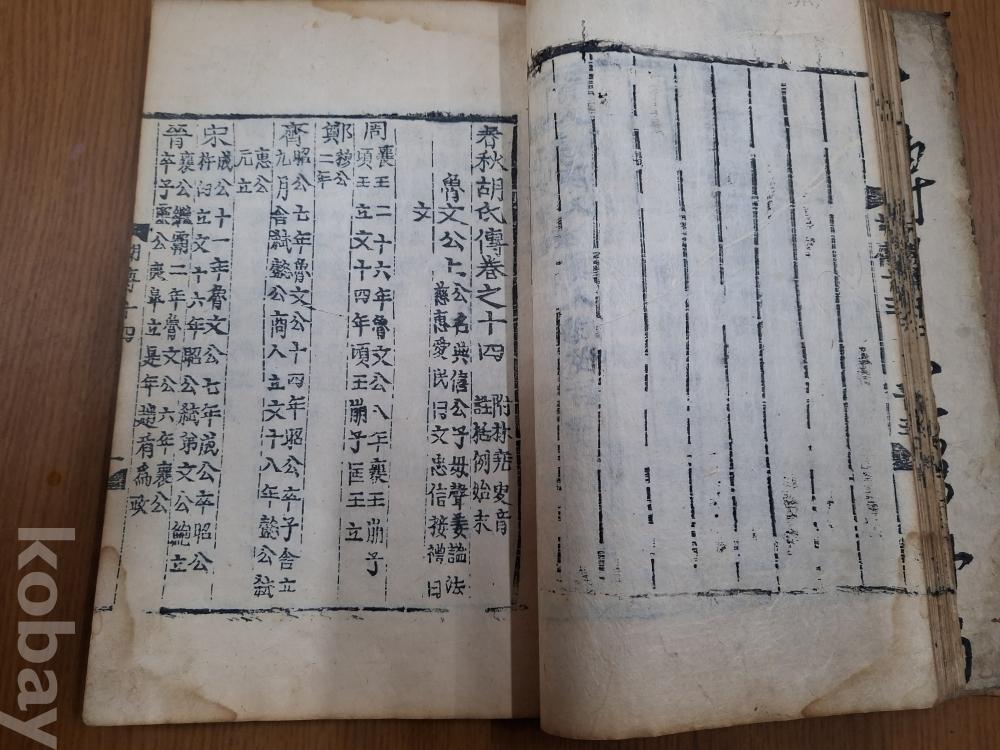 春秋胡氏傳卷之十四
附林堯叟音
註括例始末
魯文公上
公名興僖公子母聲姜謚法
慈惠愛民曰文忠信接禮曰
文
周
襄王二十六年魯文公八年襄王崩子
頃王立文十四年頃王崩子匡王立
鄭
穆公
二年
齊
昭公七年魯文公十四年昭公卒子舍立
九月舍弒懿公商人立文十八年懿公弒
惠公
元立
宋
成公十一年魯文公七年成公卒昭公
杵臼立文十六年昭公弒弟文公鮑立
晉
襄公繼霸二年魯文公六年襄公
卒子靈公夷皐立是年趙盾為政
胡傳十四
一
kobay